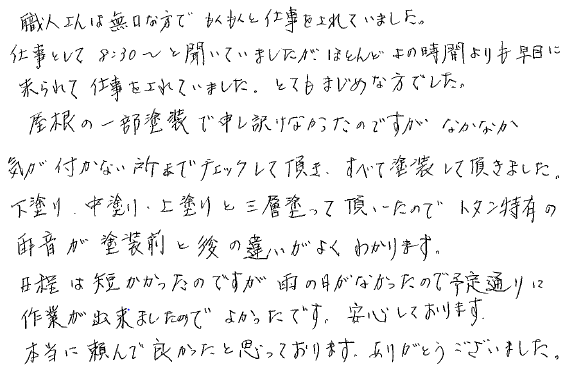 職人さんは無口な方でもくもくと仕事をされていました。
仕事として 8:30～と聞いていましたが、ほとんどその時間よりも早目に
来られて仕事をされていました。とてもまじめな方でした。
屋根の一部塗装で申し訳けなかったのですがなかなか
気が付かない所までチェックして頂き、すべて塗装して頂きました。
下塗り、中塗り、上塗りと三層塗って頂いたのでトタン特有の
雨音が塗装前と後の違いがよくわかります。
日程は短かかったのですが雨の日がなかったので予定通りに
作業が出来ましたのでよかったです。安心しております。
本当に頼んで良かったと思っております。ありがとうございました。